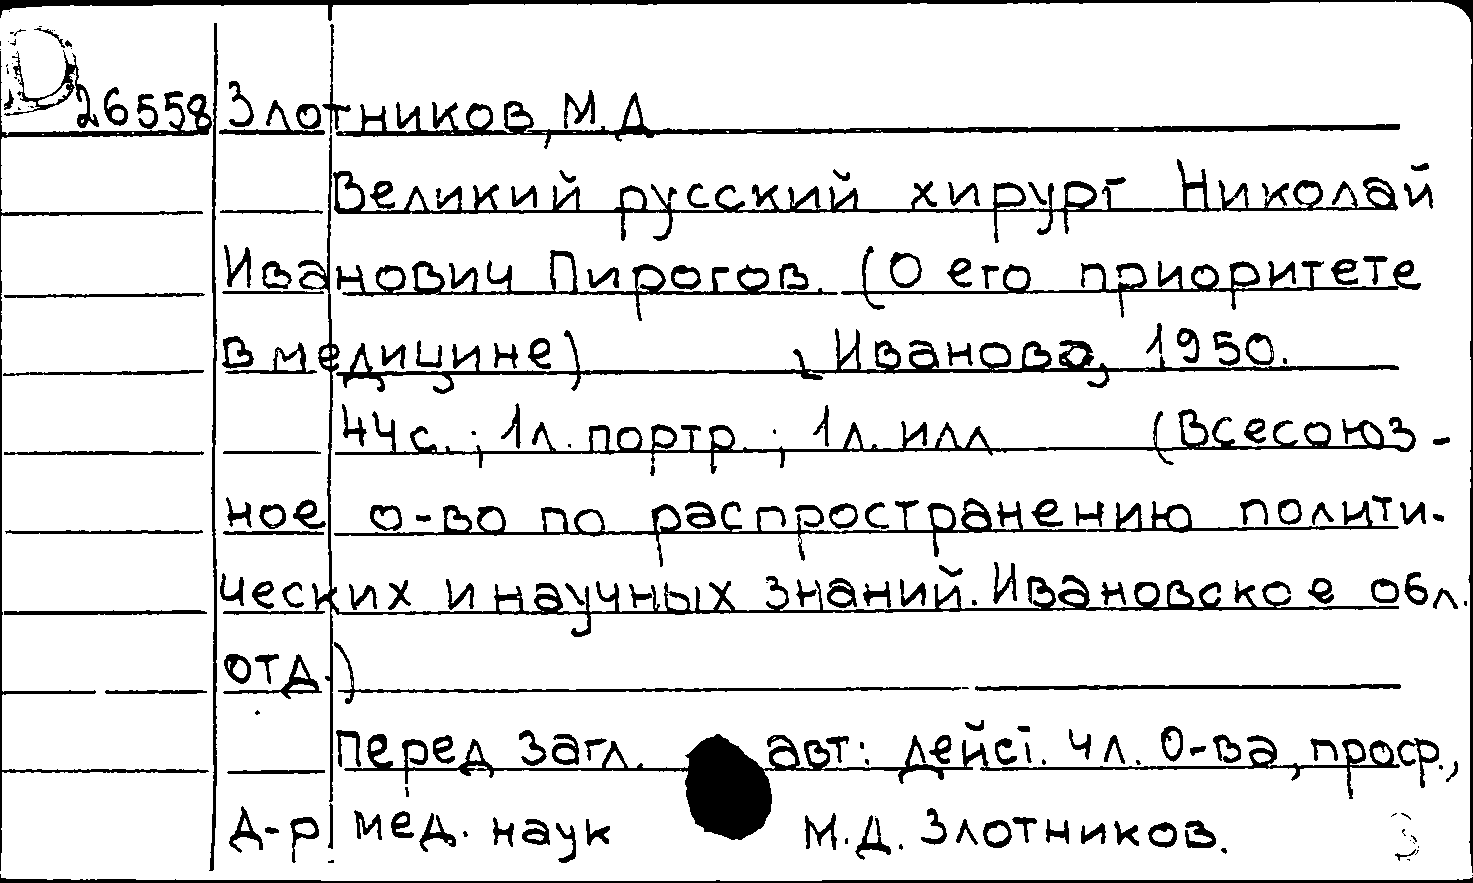 D
26558 Злотников, М.Д
Великий русский хирург Николай
Иванович Пирогов. (О его приоритете
в медицине) Иваново, 1950.
44 с.; 1 л. портр.; 1 л. илл (Всесоюз-
ное о-во по распространению полити-
ческих и научных знаний. Ивановское обл.
отд.)
Перед загл. авт: дейст. чл. О-ва, проф.,
д-р мед. наук М.Д. Злотников.
3